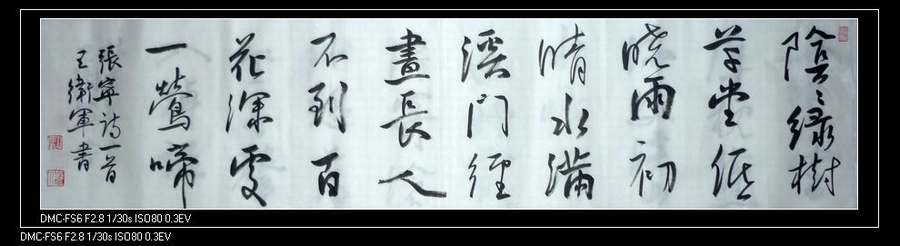 陰〻緑樹
草堂低
曉雨初
晴水滿
溪門徑
晝長人
不到百
花深處
一鶯啼
張寧詩一首
王衛軍書
DMC-FS6 F2.8 1/30s ISO80 0.3EV
DMC-FS6 F2.8 1/30s ISO80 0.3EV